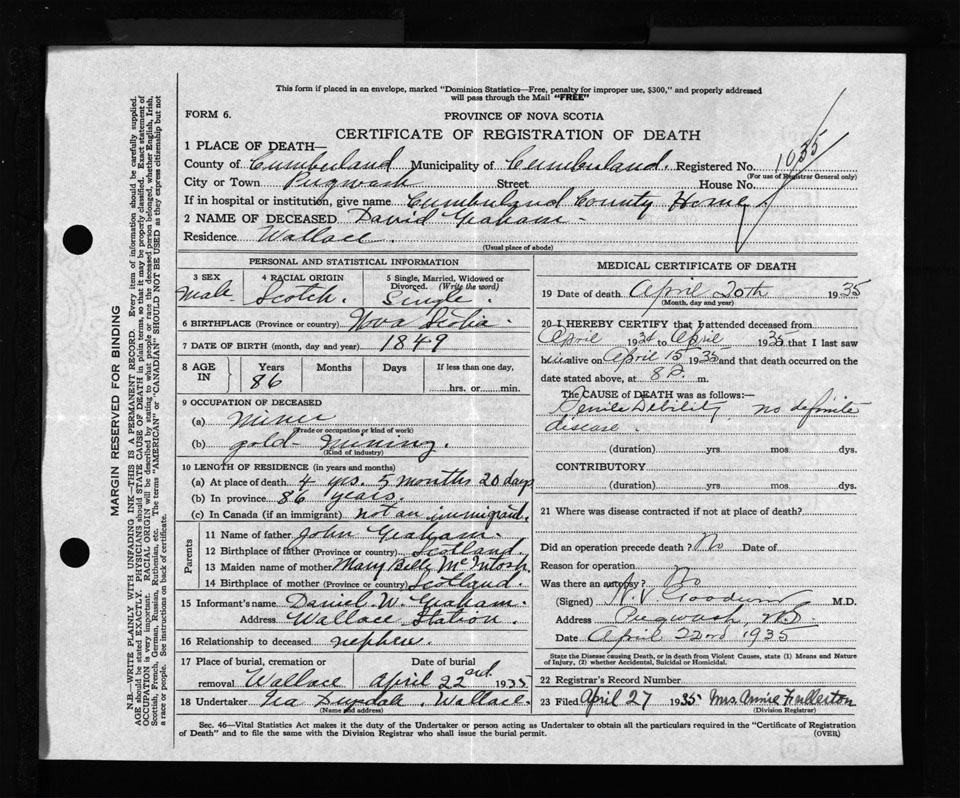 This form if placed in an envelope, marked "Dominion Statistics—Free, penalty for improper use, $300," and properly addressed
will pass through the Mail "FREE"
FORM 6.
PROVINCE OF NOVA SCOTIA
CERTIFICATE OF REGISTRATION OF DEATH
1 PLACE OF DEATH—
County of Cumberland Municipality of Cumberland. Registered No. 1035
(For use of Registrar General only)
City or Town Pugwash Street House No.
If in hospital or institution, give name Cumberland County Home
2 NAME OF DECEASED David Graham
Residence Wallace.
(Usual place of abode)
PERSONAL AND STATISTICAL INFORMATION
3 SEX
Male
4 RACIAL ORIGIN
Scotch.
5 Single, Married, Widowed or
Divorced. (Write the word)
Single.
6 BIRTHPLACE (Province or country) Nova Scotia.
7 DATE OF BIRTH (month, day and year) 1849
8 AGE
IN
Years
86
Months
Days
If less than one day,
hrs. or min.
9 OCCUPATION OF DECEASED
(a) Miner
(Trade or occupation or kind of work)
(b) gold - Mining.
(Kind of industry)
10 LENGTH OF RESIDENCE (in years and months)
(a) At place of death 4 yrs. 5 months 20 days
(b) In province 86 years.
(c) In Canada (if an immigrant) not an immigrant.
Parents
11 Name of father John Graham.
12 Birthplace of father (Province or country) Scotland.
13 Maiden name of mother Mary Bell McIntosh
14 Birthplace of mother (Province or country) Scotland.
15 Informant's name Daniel W. Graham.
Address Wallace Station.
16 Relationship to deceased nephew.
17 Place of burial, cremation or
removal Wallace
Date of burial
April 22nd 1935
18 Undertaker Wallace.
(Name and address)
MEDICAL CERTIFICATE OF DEATH
19 Date of death April 20th 1935
(Month, day and year)
20 I HEREBY CERTIFY that I attended deceased from
April 1934 to April 1935 that I last saw
him alive on April 15 1935 and that death occurred on
date stated above, at 8 P. m.
The CAUSE of DEATH was as follows:—
Senile Debility no definite
disease.
(duration) yrs mos dys.
CONTRIBUTORY
(duration) yrs. mos dys.
21 Where was disease contracted if not at place of death?
Did an operation precede death? No Date of
Reason for operation
Was there an autopsy? No
(Signed) H. V. Goodwin M.D.
Address Pugwash, N.S.
Date April 22nd 1935
State the Disease causing Death, or in death from Violent Causes, state (1) Means and Nature
of Injury, (2) whether Accidental, Suicidal or Homicidal.
22 Registrar's Record Number
23 Filed April 27 1935 Mrs. Annie Fullerton
(Division Registrar)
Sec. 46—Vital Statistics Act makes it the duty of the Undertaker or person acting as Undertaker to obtain all the particulars required in the "Certificate of Registration
of Death" and to file the same with the Division Registrar who shall issue the burial permit.
(OVER)
MARGIN RESERVED FOR BINDING
N.B.—WRITE PLAINLY WITH UNFADING INK—THIS IS A PERMANENT RECORD. Every item of information should be carefully supplied.
AGE should be stated EXACTLY. PHYSICIANS should STATE CAUSE OF DEATH in plain terms, so that it may be properly classified. Exact statement of
OCCUPATION is very important. RACIAL ORIGIN will be described by stating to what people or race the deceased person belonged, whether English, Irish,
Scottish, French, German, Russian, Ruthenian, etc. The terms "AMERICAN" or "CANADIAN" SHOULD NOT BE USED as they express citizenship but not
a race or people. See instructions on back of certificate.